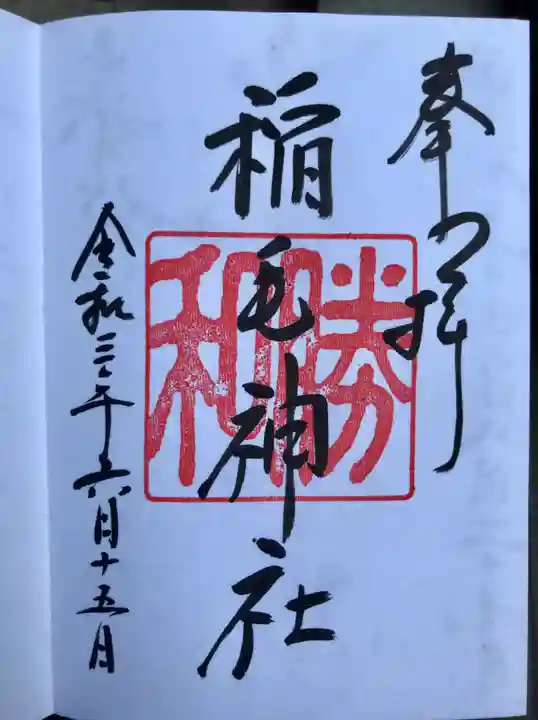 奉拝
稲毛神社
勝利
令和三年六月十五日